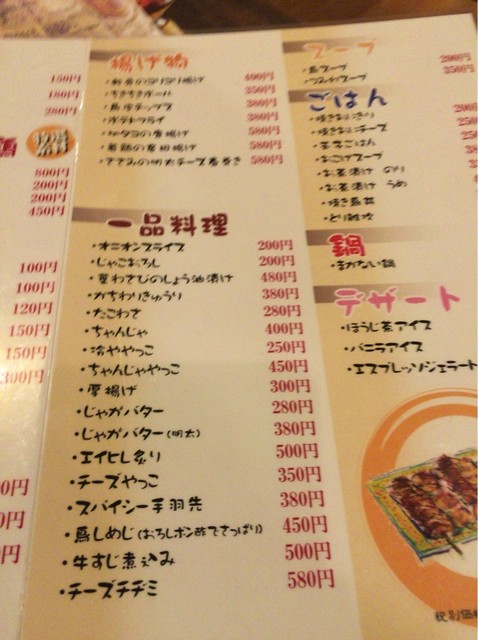 150円
180円
280円
800円
200円
200円
450円
100円
100円
120円
150円
150円
300円
揚げ物
400円
ちきちきボール 350円
鳥皮チップス 380円
ポテトフライ 380円
580円
若鶏の唐揚げ 580円
ささみの明太チーズ春巻き 580円
一品料理
・オニオンスライス 200円
・じゃこおろし 200円
・茎わさびのしょう油漬け 480円
・かちわりきゅうり 380円
・たこわさ 280円
・ちゃんじゃ 400円
・冷ややっこ 250円
・ちゃんじゃやっこ 450円
・厚揚げ 300円
・じゃがバター 280円
・じゃがバター(明太) 380円
・エイヒレ炙り 500円
・チーズやっこ 350円
・スパイシー手羽先 380円
・鳥しめじ(おろしポン酢でさっぱり) 450円
・牛すじ煮込み 500円
・チーズチヂミ 580円
スープ
・鳥スープ 200円
・つみれスープ 350円
ごはん
・焼きおにぎり 200
・焼きおにチーズ 250
・茶そごはん
・おこげスープ
・お茶漬け のり
・お茶漬け うめ
・焼き鳥丼
・とり雑炊
鍋
・まかない鍋
デザート
・ほうじ茶アイス
・バニラアイス
・エスプレッソジェラート
税別価格